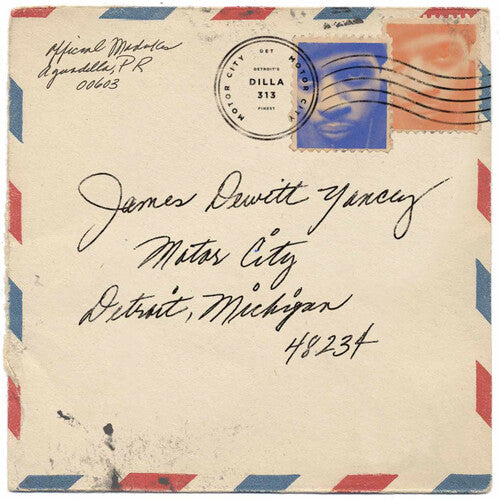 Official Modokes
Aguadilla, PR
00603
MOTOR CITY
DET
DETROIT'S
DILLA
313
FINEST
MOTOR CITY
James Dewitt Yancey
Motor City
Detroit, Michigan
48234